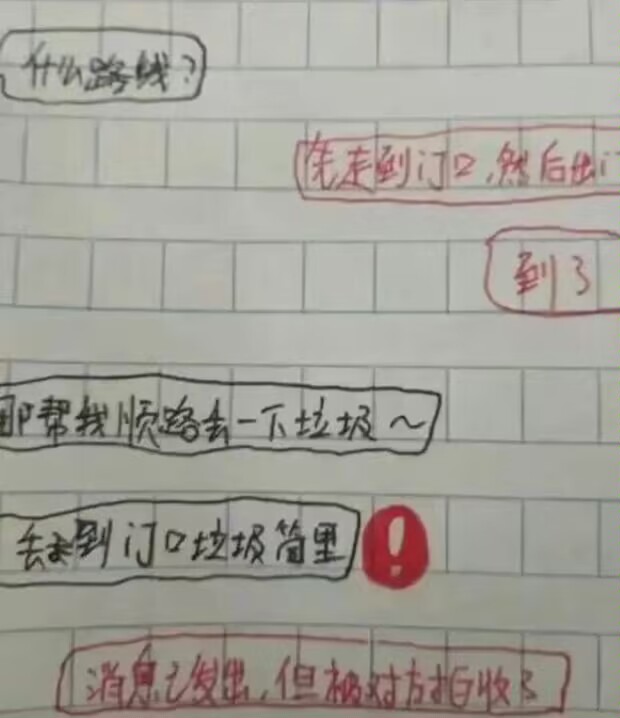 什么路线？
先走到门口，然后出门
到了
那帮我顺路丢一下垃圾～
丢到门口垃圾筒里
!
消息已发出，但被对方拒收了